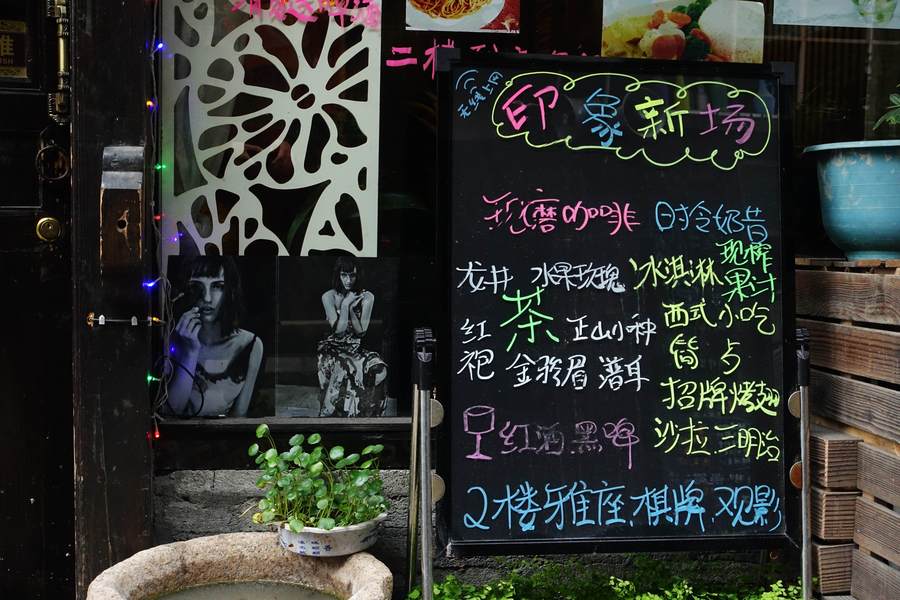 无线上网
印象新场
现磨咖啡
时令奶昔
龙井
水果玫瑰
冰淇淋
现榨
果汁
茶
红
袍
正山小种
金骏眉
普耳
西式小吃
简点
招牌烤翅
沙拉.三明治
红酒黑啤
2楼雅座.棋牌.观影
二楼